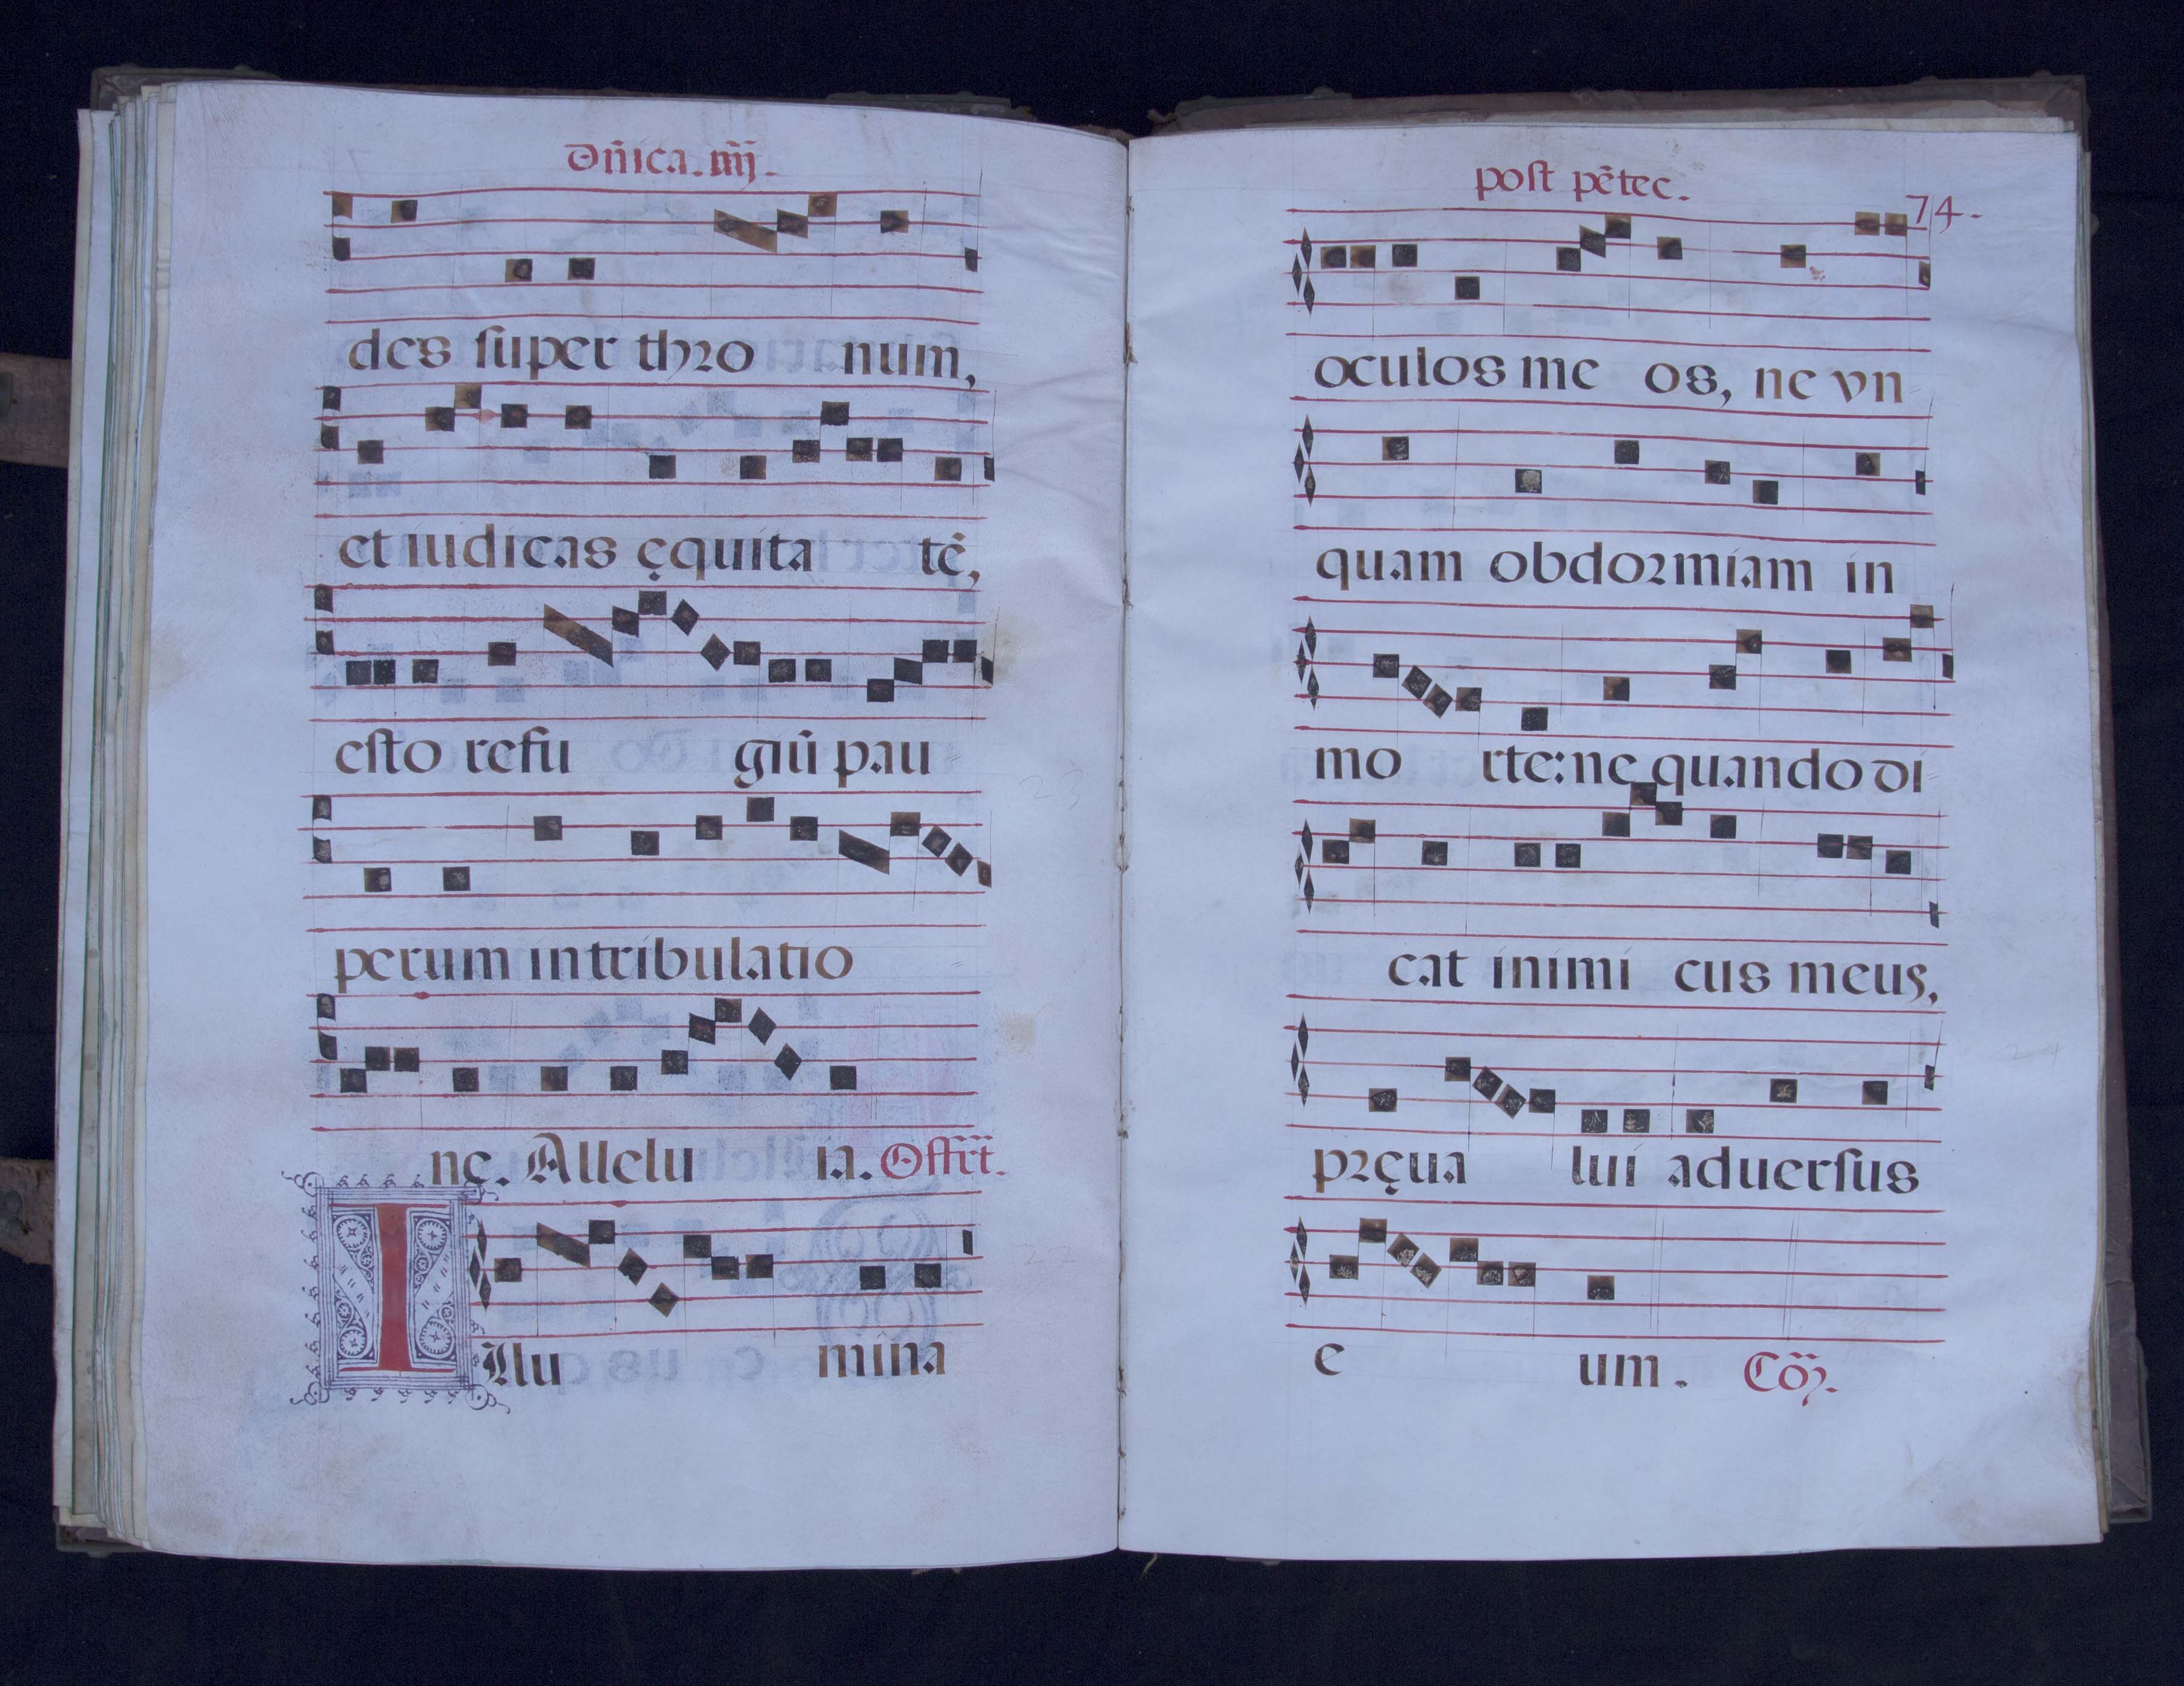 Dñica. iiij.
des super thro num,
et iudicas ęquita tē,
esto refu giū pau
perum in tribulatio
ne. Allelu ia. Offrt.
Illu mina
post pētec.
74.
oculos me os, ne vn
quam obdormiam in
mo rte: ne quando di
cat inimi cus meus,
pręua lui aduersus
e um. Cōȝ.